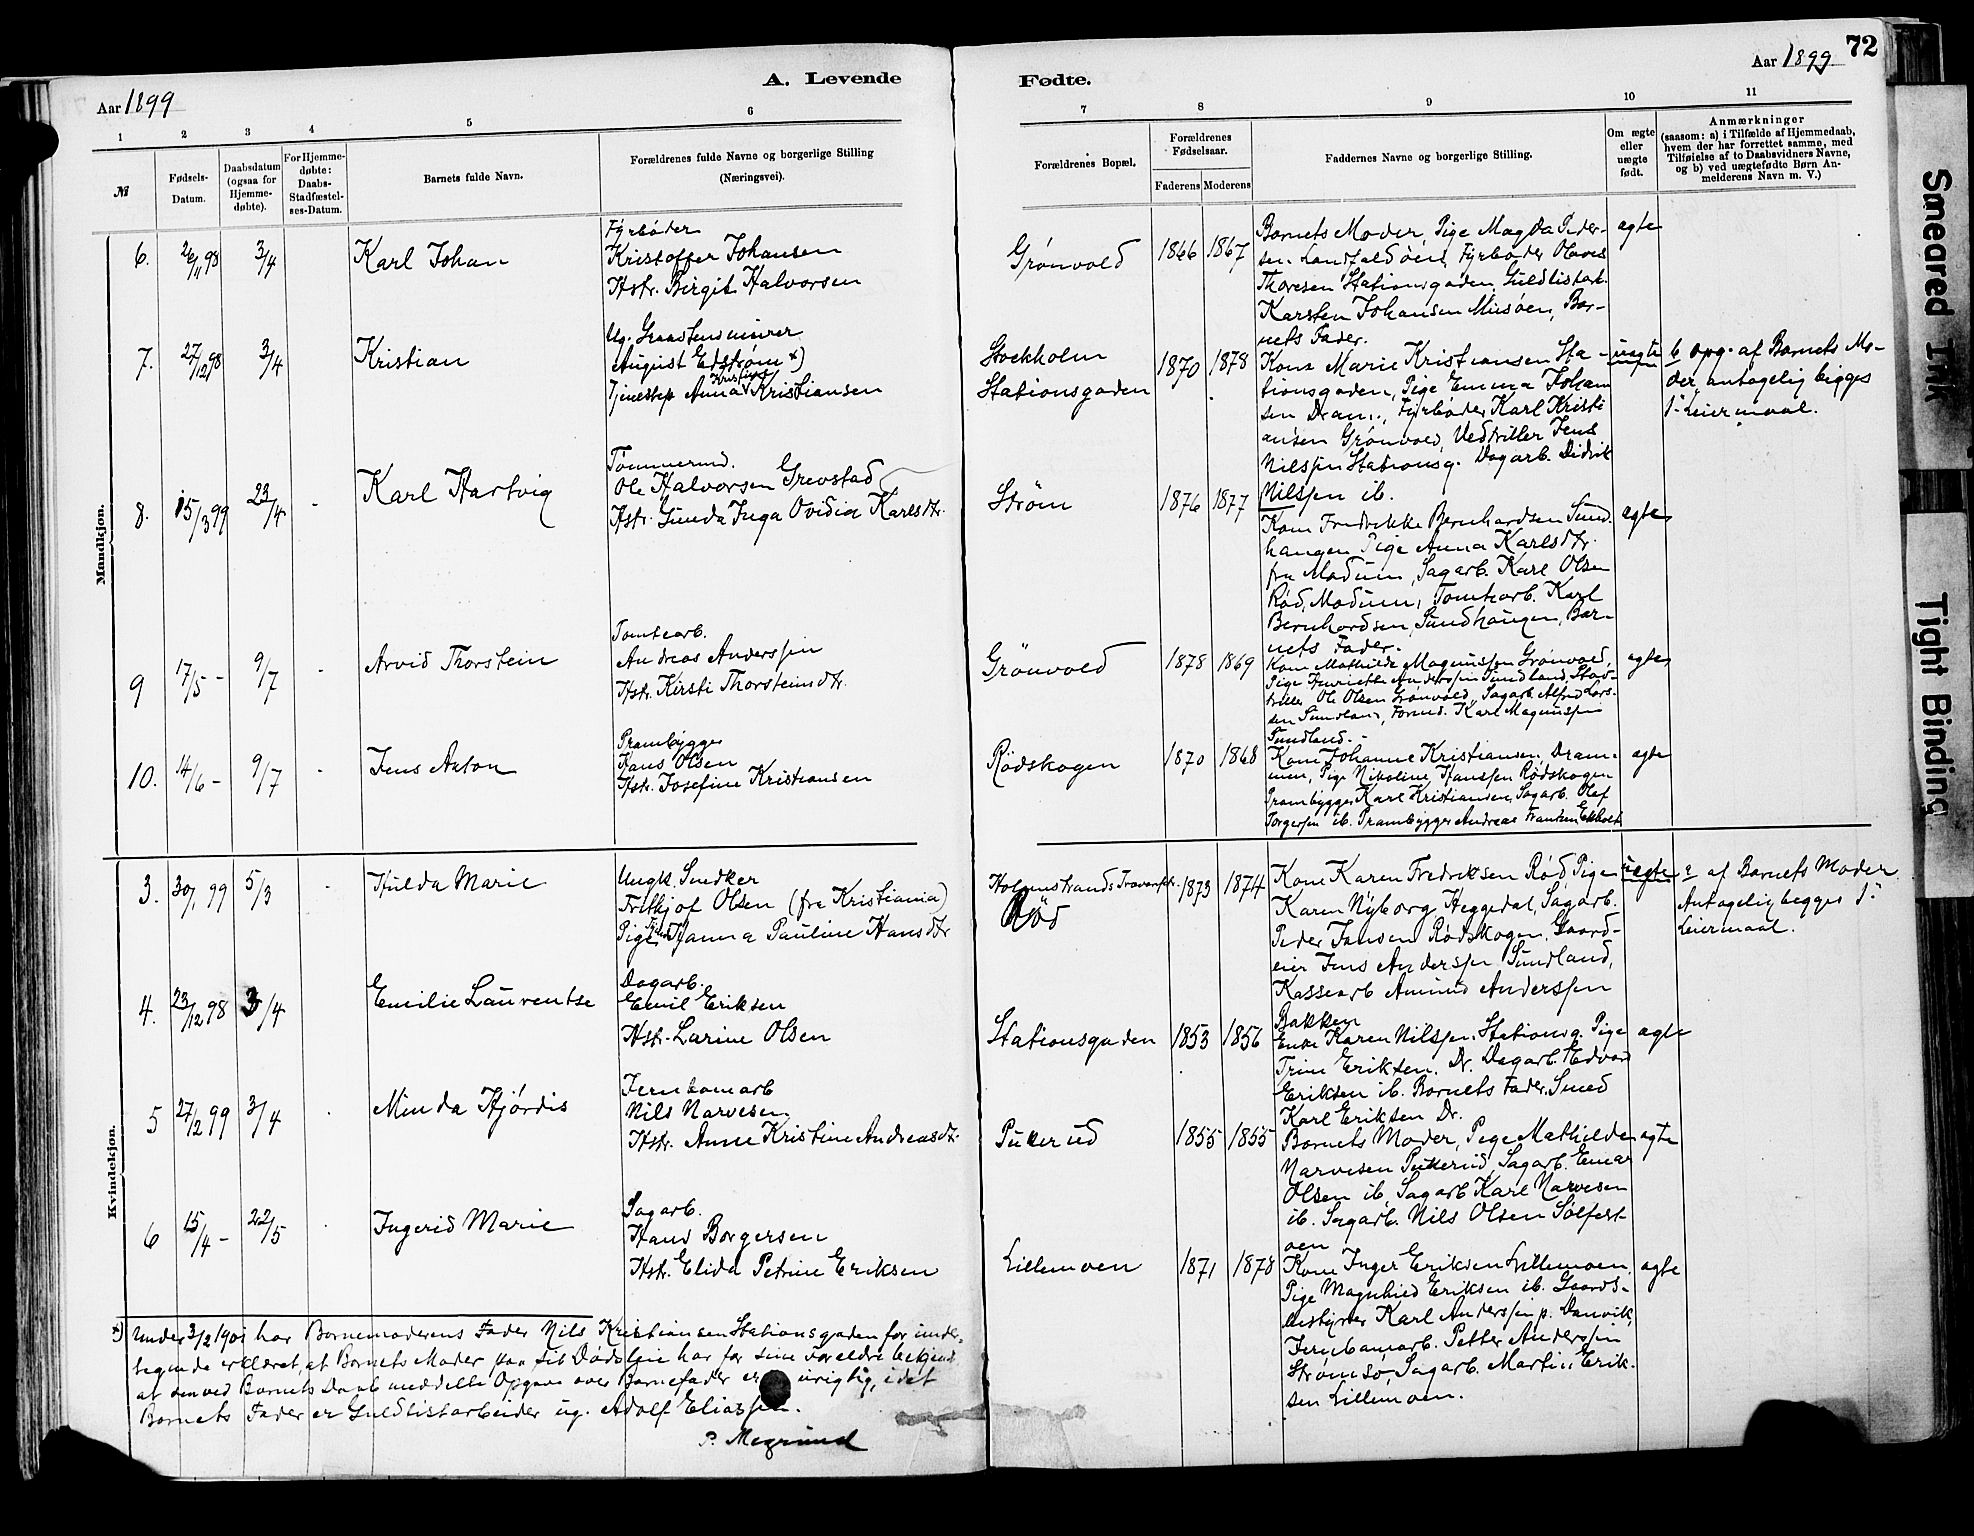 72
Aar 1899
A. Levende
Fødte.
Aar 1899
1 2 3 4 5 6 7 8 9 10 11
№
Fødsels-
Datum.
Daabsdatum
(ogsaa for
Hjemme-
døbte).
For Hjemme-
døbte:
Daabs-
Stadfæstel-
ses-Datum.
Barnets fulde Navn.
Forældrenes fulde Navne og borgerlige Stilling
(Næringsvei).
Forældrenes Bopæl.
Forældrenes
Fødselsaar.
Faderens Moderens
Faddernes Navne og borgerlige Stilling
Om ægte
eller
uægte
født.
Anmærkninger
(saasom: a) i Tilfælde af Hjemmedaab,
hvem der har forrettet samme, med
Tilføielse af to Daabsvidners Navne,
og b) ved uægtefødte Børn An-
melderens Navn m. V.)
Mandkjøn.
6. 26/11 98 3/4 Karl Johan
Fyrbøder
Kristoffer Johansen
Hstr. Birgit Halvorsen
Grønvold 1866 1867
Barnets Moder, Pige Magda Peder-
sen Landfaldøen, Fyrbøder Olaves
Thoresen Stationsgaden, Guldlistarb.
Karsten Johansen Muusøen, Bar-
nets Fader.
ægte
7. 27/12 98 3/4 Kristian
Ug. Graastensmurer
August Edstrøm x)
Kristine
Tjenestep Anna Kristiansen
Stockholm
Stationsgaden
1870 1878
Kona Marie Kristiansen Sta-
tionsgaden, Pige Emma Johan
sen Dram., Fyrbøder Karl Kristi
ansen Grønvold, Vedskiller Jens
Nilssen Stationsg. Dagarb. Didrik
Nilssen ib.
uægte
b opg. af Barnets Mo-
der antagelig begges
1. Leiermaal.
8. 15/3 99 23/4 - Karl Hartvig
Tømmermd.
Ole Halvorsen Grevstad
Hstr. Gunda Inga Ovidia Karlsdtr.
Strøm 1876 1877
Kone Fredrikke Bernhardsen Sund-
haugen Pige Anna Karlsdtr.
fra Modum, Sagarb. Karl Olsen
Rød, Modum, Tomtearb. Karl
Bernhardsen, Sundhaugen, Bar-
nets Fader.
ægte
9 17/5 - 9/7 - Arvid Thorstein
Tomtearb.
Andreas Anderssen
Hstr. Kirsti Thorsteinsdtr.
Grönvold 1878 1869
Kone Mathilde Magnussen Grønvold,
Pige Henriette Anderssen Sundland,
Ole Olsen Grønvold, Sagarb. Alfred Lars-
sen Sundland, Formd. Karl Magnussen
Sundland.-
ægte
10. 14/6 - 9/7 - Jens Anton
Prambygger
Hans Olsen
Hstr. Josefine Kristiansen
Rödskogen 1870 1868
Kone Johanne Kristiansen, Dram-
men, Pige Nikoline Hanssen Rødskogen
Prambygger Karl Kristiansen, Sagarb. Olaf
Torgersen ib. Prambygger Andreas Frantsen Ekholt
ægte
Kvindekjøn.
3. 30/1 99 5/3 - Hulda Marie
Ungk. Snedker
Frithjof Olsen (fra Kristiania)
Pige Hanna Pauline Hansdtr
Rød
1873 1874
Kone Karen Fredriksen Rød Pige
Karen Nyborg Heggedal, Sagarb.
Peder Jansen Rødskogen, Gaard-
eier Jens Anderssen Sundland,
Kassearb Amund Anderssen
Bakken
uægte
af Barnets Moder
Antagelig begges 1.
Leiermaal.
4. 23/12 98 3/4 Emilie Laurentse
Dagarb.
Emil Eriksen
Hstr. Larine Olsen
Stationsgaden 1853 1856
Enke Karen Nilssen, Stationsg. Pige
Trine Eriksen. Dr. Dagarb. Edvard
Eriksen ib. Barnets Fader, Smed
Karl Eriksen Dr.
ægte
5 27/2 99 3/4 . Minda Hjørdis
Jernbanearb
Nils Narvesen
Hstr. Anne Kristine Andreasdtr.
Pukerud 1855 1855
Barnets Moder, Pige Mathilde
Narvesen Pukerud, Sagarb. Einar
Olsen ib, Sagarb Karl Narvesen
ib. Sagarb. Nils Olsen Sølfest-
øen
ægte
6 15/4 - 22/5 . Ingerid Marie
Sagarb.
Hans Borgersen
Hstr. Elida Petrine Eriksen
Lillemoen 1871 1878
Kone Inger Eriksen Lillemoen,
Pige Magnhild Eriksen ib. Gaards-
bestyrer Karl Anderssen p. Danvik,
Jernbanearb. Petter Anderssen
Strømsø, Sagarb. Martin Erik-
sen Lillemoen.
ægte
x) Under 3/2 1901 har Barnemoderens Fader Nils Kristiansen Stationsgaden for under-
tegnede erklæret, at Barnets Moder paa sit Dødsleie har for sine Forældre bekjendt
at den ved Barnets Daab meddelte Opgave over Barnefader er urigtig, idet
Barnets Fader er Guldlistarbeider ug. Adolf Eliassen.
Smeared Ink
Tight Binding